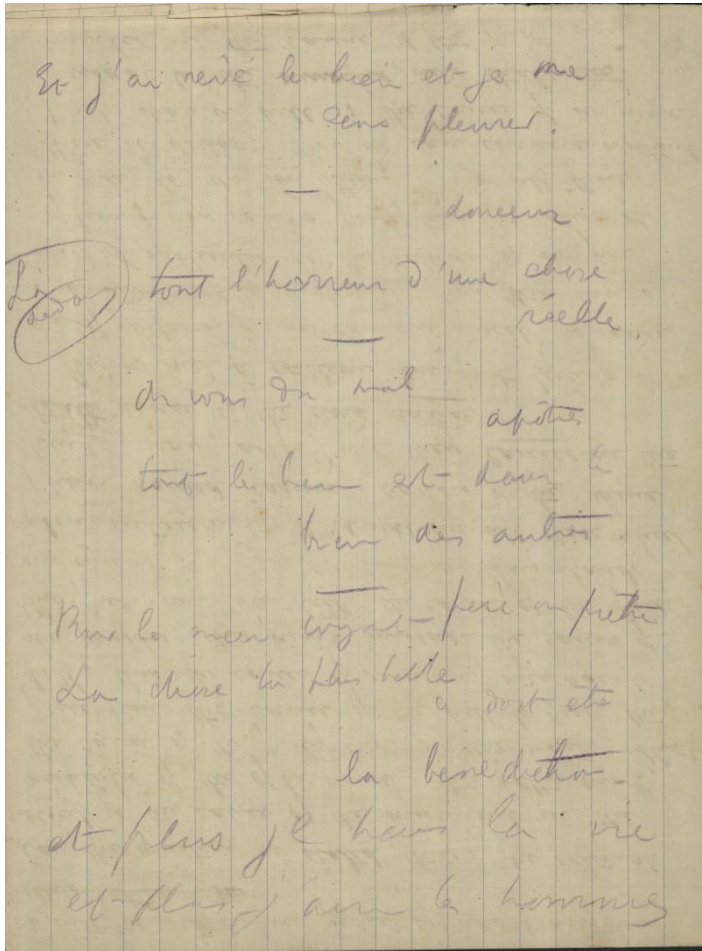 Et j'ai rêvé le bien et je me
sens pleurer.
douceur
tout l'horreur d'une chose
réelle.
du mal
apôtres
tout le bien est dans le
bien des autres
Pour la croyant père ou prêtre
La chose la plus belle
doit être
la bénédiction
et plus je hais la vie
et plus j'aime les hommes